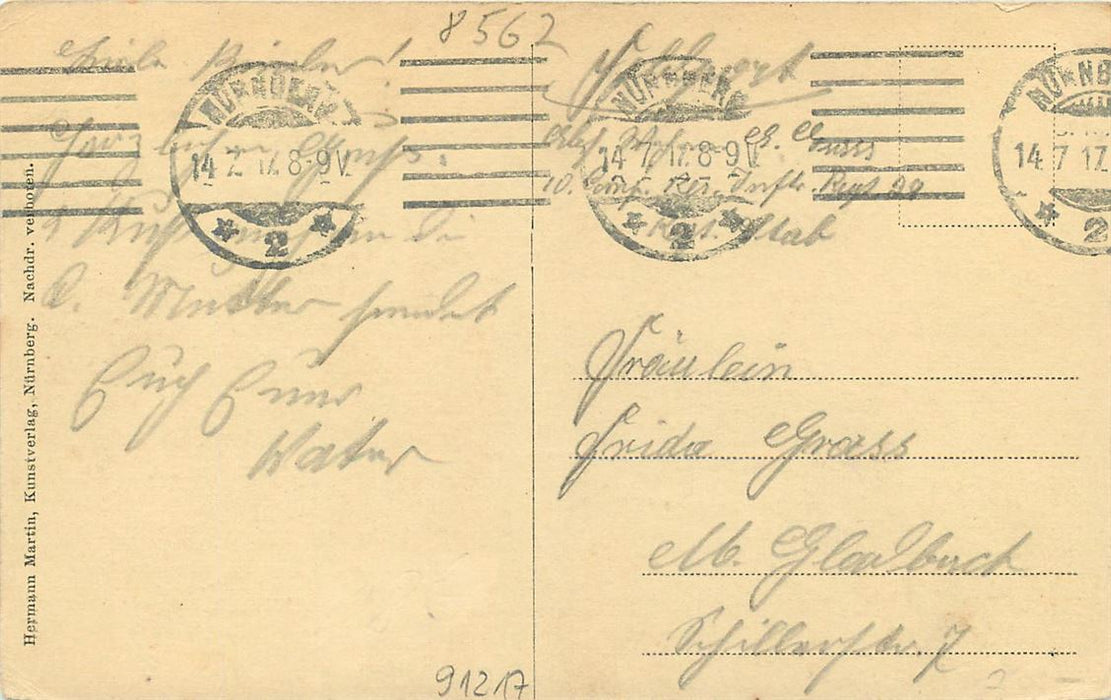 8562
Liebe Kinder!
Herzlichen Gruß.
u Kuß auch an die
l. Mutter sendet
Euch Euer
Vater
Feldpost
NÜRNBERG
14 7 17. 8-9 V.
2
NÜRNBERG
14 7 17. 8-9 V.
2
NÜRNB
14 7 17.
2
Abs. Wehrm. G. Grass
10. Comp. Res. Inftr. Regt. 29
Stab
Fräulein
Frida Grass
M. Gladbach
Schillerstr. 7
Hermann Martin, Kunstverlag, Nürnberg. Nachdr. verboten.
91217